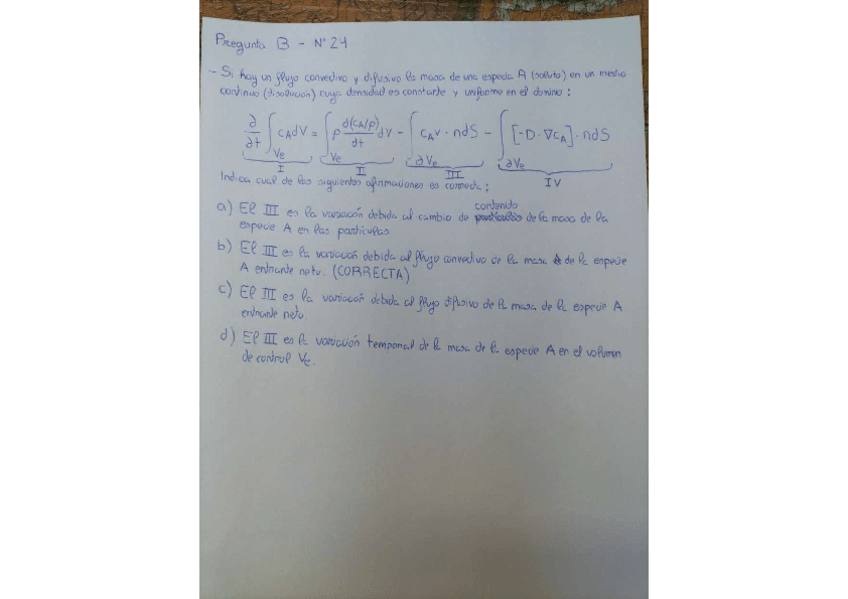 Pregunta B - Nº 24
- Si hay un flujo convectivo y difusivo la masa de una especie A (soluto) en un medio
continuo (disolución) cuya densidad es constante y uniforme en el dominio:
∂/∂t ∫ cA dV = ∫ ρ d(cA/ρ)/dt dV - ∫ cA v · n dS - ∫ [-D · ∇cA] · n dS
Vc Vc ∂Vc ∂Vc
I II III IV
Indica cual de las siguientes afirmaciones es correcta:
contenido
a) El III es la variación debida al cambio de de la masa de la
especie A en las partículas
b) El III es la variación debida al flujo convectivo de la masa de la especie
A entrante neto. (CORRECTA)
c) El III es la variación debida al flujo difusivo de la masa de la especie A
entrante neto.
d) El III es la variación temporal de la masa de la especie A en el volumen
de control Vc.